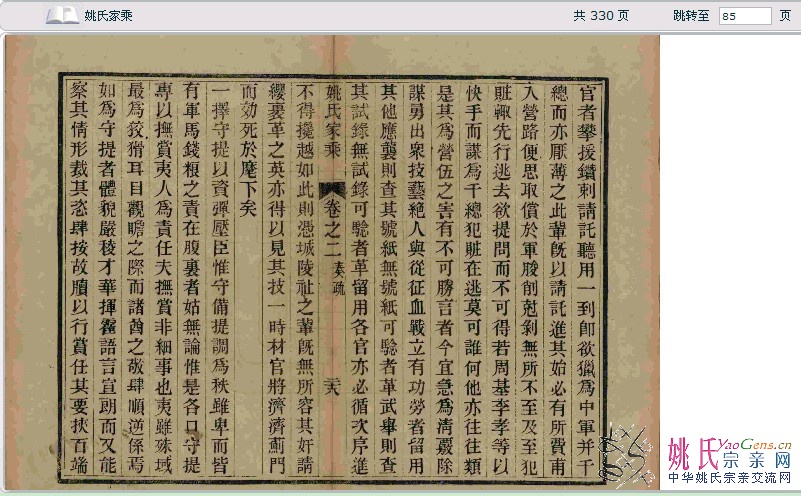 姚氏家乘
共 330 页
跳转至 85 页
官者攀援鑽刺請託聽用一到即欲獵為中軍並千
總而亦厭薄之此輩既以請託進其始必有所費甫
入營路便思取償於軍朘削剋剝無所不至及至犯
賍輒先行逃去欲提問而不可得若周基李孝等以
快手而謀為千總犯賍在逃莫可誰何他亦往往類
是其為營伍之害有不可勝言者今宜急為清覈除
謀勇出衆技藝絕人與從征血戰立有功勞者留用
其他應襲則查其號紙無號紙可驗者革武舉則查
其試錄無試錄可驗者革留用各官亦必循次序進
姚氏家乘 卷之二 奏疏 二六
不得攙越如此則憑城陵祉之輩既無所容其奸請
纓裹革之英亦得以見其技一時材官將濟濟薊門
而効死於麾下矣
一擇守提以資彈壓臣惟守備提調為秩雖卑而皆
有軍馬錢粮之責在腹裏者姑無論惟是各口守提
專以撫賞夷人為責任夫撫賞非細事也夷雖殊域
最為狡猾耳目觀瞻之際而諸酋之敬肆順逆係焉
如為守提者體貌嚴稜才華揮霍語言宣朗而又能
察其情形裁其恣肆按故牘以行賞任其要挾百端
姚氏宗亲网
YaoGens.cn
中华姚氏宗亲交流网